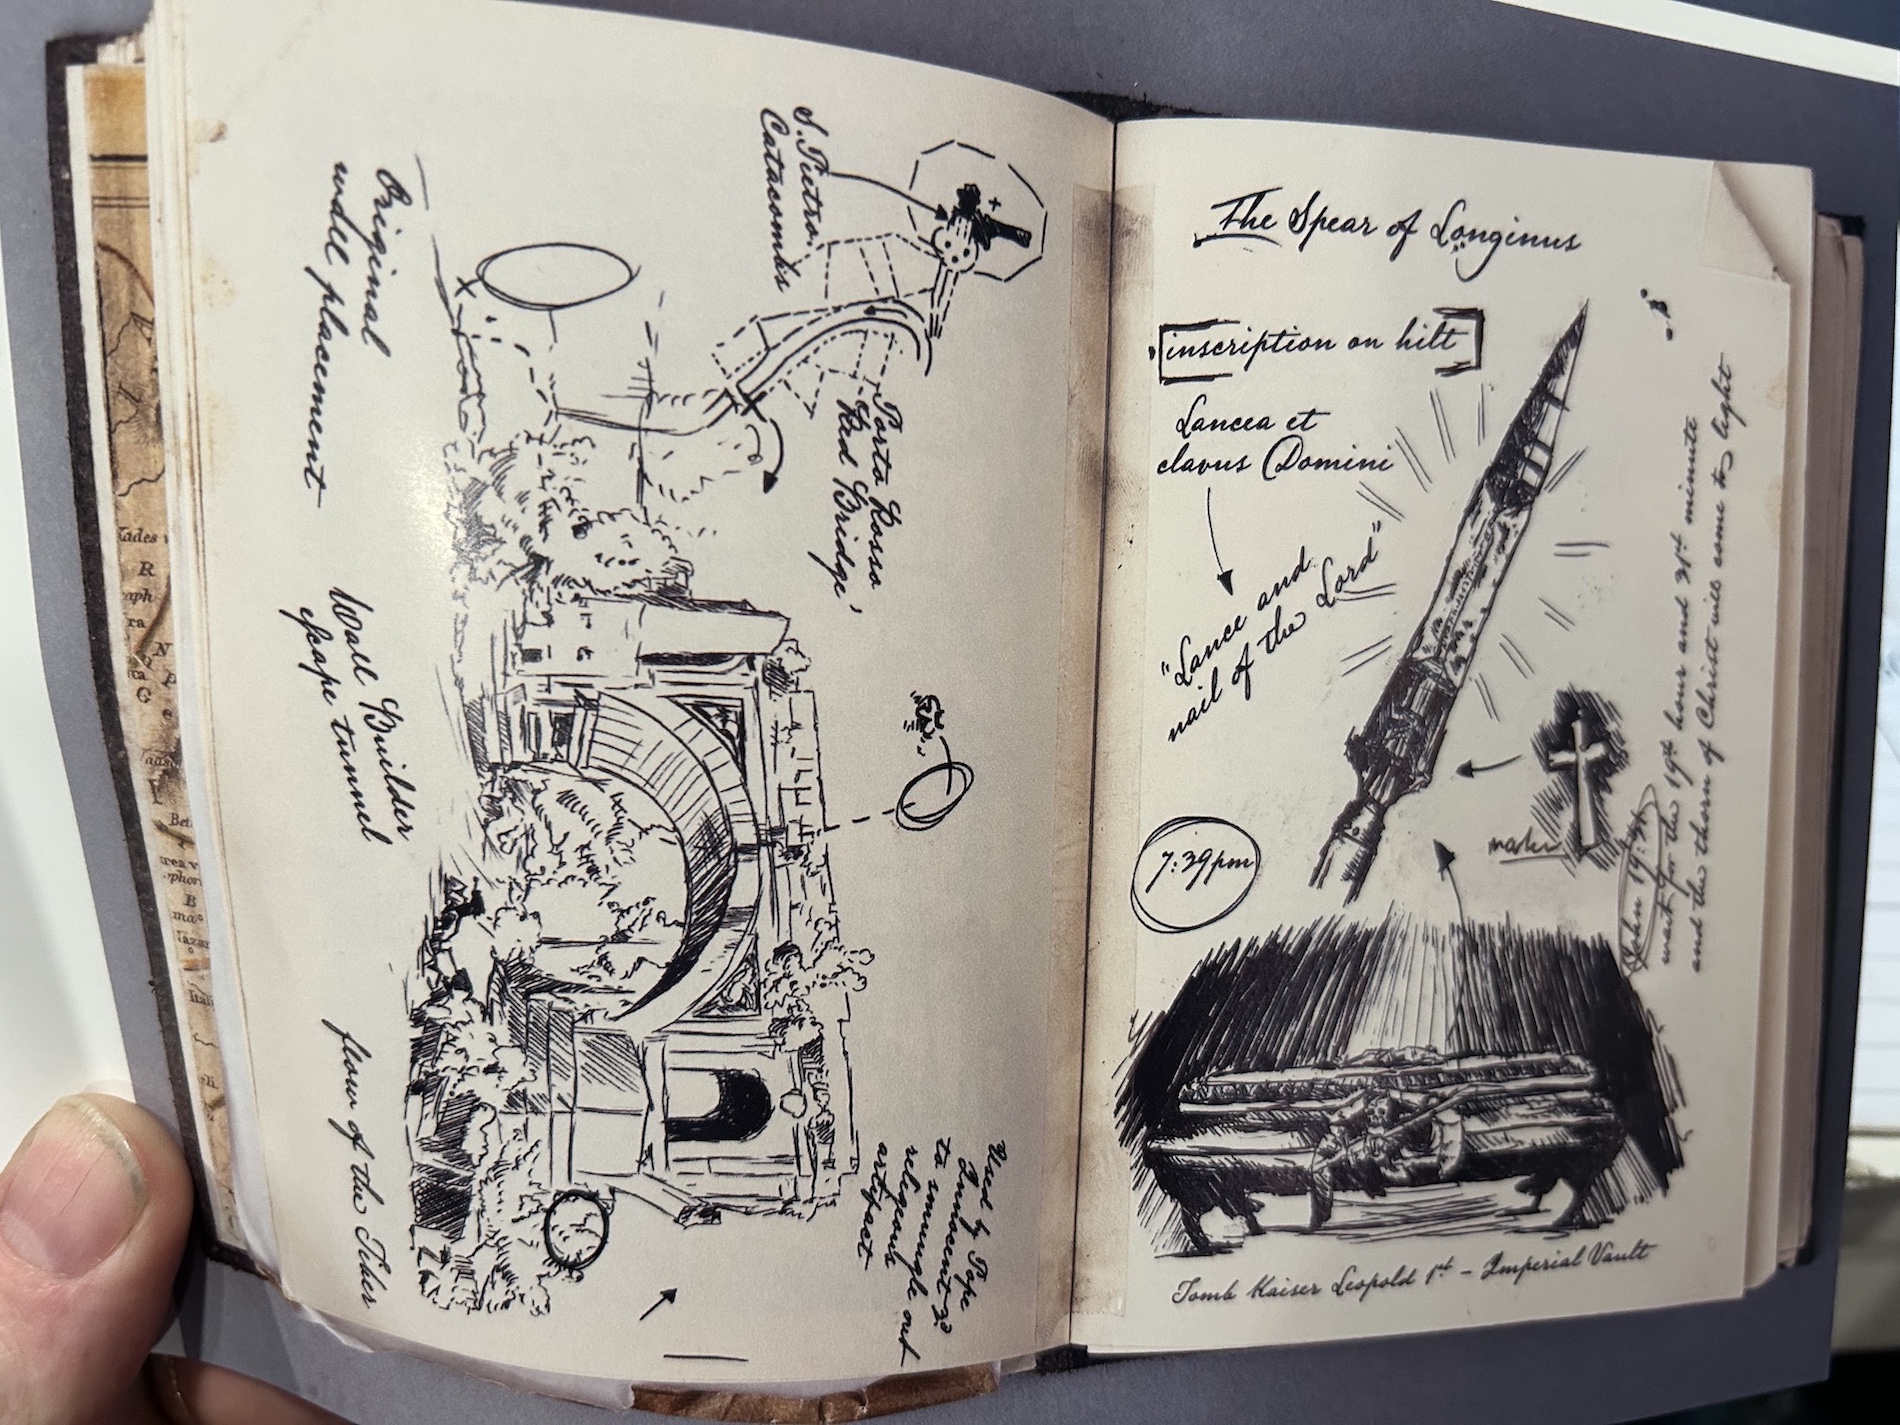 Original
wall placement
Wall Builder
escape tunnel
flow of the Tiber
S. Pietro
Catacombs
Porta Rossa
'Red Bridge'
Used by Pope
Innocent 3
to smuggle out
religeous
artifact
The Spear of Longinus
inscription on hilt
Lancea et
clavus Domini
"Lance and
nail of the Lord"
7:39pm
John 19:
wait for the 19th hour and 39th minute
and the thorn of Christ will come to light
Tomb Kaiser Leopold 1st - Imperial Vault
R
ra
N
P
G
e
B